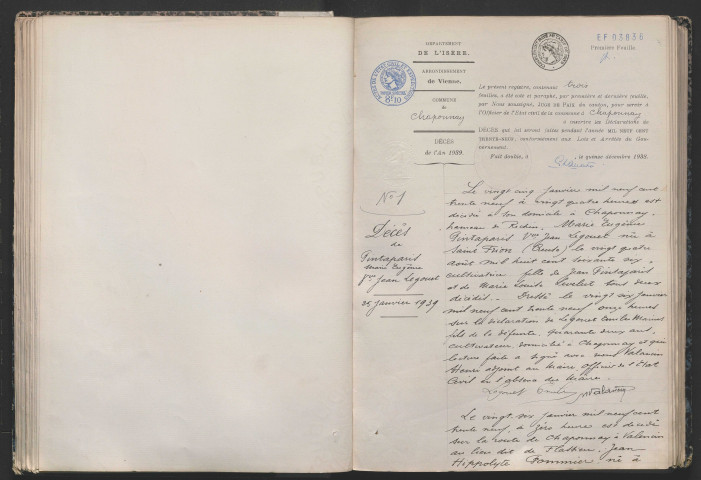 DÉPARTEMENT
DE L'ISÈRE.
ARRONDISSEMENT
de Vienne.
COMMUNE
de
Chaponnay
DÉCÈS
de l'An 1939.
EF 03836
Première Feuille
Le présent registre, contenant trois
feuilles, a été coté et paraphé, par première et dernière feuille,
par Nous soussigné, JUGE DE PAIX du canton, pour servir à
l'Officier de l'État civil de la commune d Chaponnay
à inscrire les Déclarations de
DÉCÈS qui lui seront faites pendant l'année MIL NEUF CENT
TRENTE-NEUF, conformément aux Lois et Arrêtés du Gou-
vernement.
Fait double, à , le quinze décembre 1938.
No 1
Décès
de
Pintaparis
Marie Eugénie
Vve Jean Légouet
25 Janvier 1939
Le vingt cinq janvier mil neuf cent
trente neuf à vingt quatre heures est
décédée à son domicile à Chaponnay,
hameau de Marie Eugénie
Pintaparis Vve Jean Légouet née à
Saint Frion (Creuse) le vingt quatre
août mil huit cent soixante six,
cultivatrice fille de Jean Pintaparis
et de Marie Louise tous deux
décédés. Dressé le vingt six janvier
mil neuf cent trente neuf onze heures
sur la déclaration de Légouet
fils de la défunte, quarante deux ans,
cultivateur, domicilié à Chaponnay et qui
lecture faite a signé avec nous
Henri adjoint au Maire, officier de l'État
Civil en l'absence du Maire.
Le vingt six janvier mil neuf cent
trente neuf, à zéro heure est décédé
sur la route de Chaponnay à Valencin
au lieu dit de Jean
Hippolyte Pommier né à